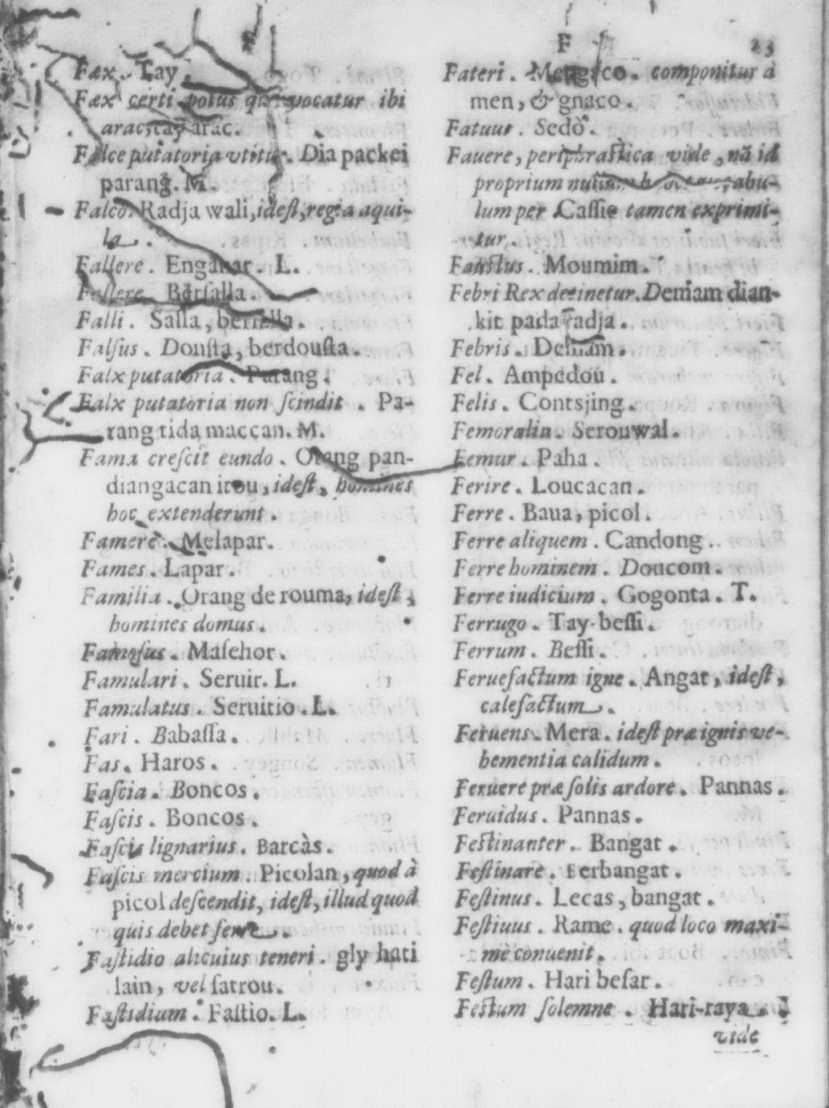 F 23
Fæx. Tay.
Fæx certi potus qui vocatur ibi
arac, tay arac.
Falce putatoria vtitur. Dia packei
parang. M.
Falco. Radja wali, idest, regia aqui-
la.
Fallere. Engañar. L.
Fallere. Bersalla.
Falli. Salla, bersalla.
Falsus. Dousta, berdousta.
Falx putatoria. Parang.
Falx putatoria non scindit. Pa-
rang tida maccan. M.
Fama crescit eundo. Orang pan-
diangacan itou, idest, homines
hoc extenderunt.
Famere. Melapar.
Fames. Lapar.
Familia. Orang de rouma, idest,
homines domus.
Famosus. Masehor.
Famulari. Seruir. L.
Famulatus. Seruitio. L.
Fari. Babassa.
Fas. Haros.
Fascia. Boncos.
Fascis. Boncos.
Fascis lignarius. Barcàs.
Fascis mercium. Picolan, quod à
picol descendit, idest, illud quod
quis debet ferre.
Fastidio alicuius teneri. gly hati
lain, vel satrou.
Fastidium. Fastio. L.
Fateri. Mengaco. componitur à
men, & gnaco.
Fatuus. Sedo.
Fauere, periphrastica vide, nã id
proprium vocabu-
lum per Cassie tamen exprimi-
tur.
Faustus. Moumim.
Febri Rex detinetur. Demam dian-
kit pada radja.
Febris. Demam.
Fel. Ampedou.
Felis. Contsjing.
Femoralia. Serouwal.
Femur. Paha.
Ferire. Loucacan.
Ferre. Baua, picol.
Ferre aliquem. Candong.
Ferre hominem. Doucom.
Ferre iudicium. Gogonta. T.
Ferrugo. Tay-bessi.
Ferrum. Bessi.
Feruefactum igne. Angat, idest,
calefactum.
Feruens. Mera. idest præ ignis ve-
hementia calidum.
Feruere præ solis ardore. Pannas.
Feruidus. Pannas.
Festinanter. Bangat.
Festinare. Berbangat.
Festinus. Lecas, bangat.
Festiuus. Rame. quod loco maxi-
me conuenit.
Festum. Hari besar.
Festum solemne. Hari-raya.
vide